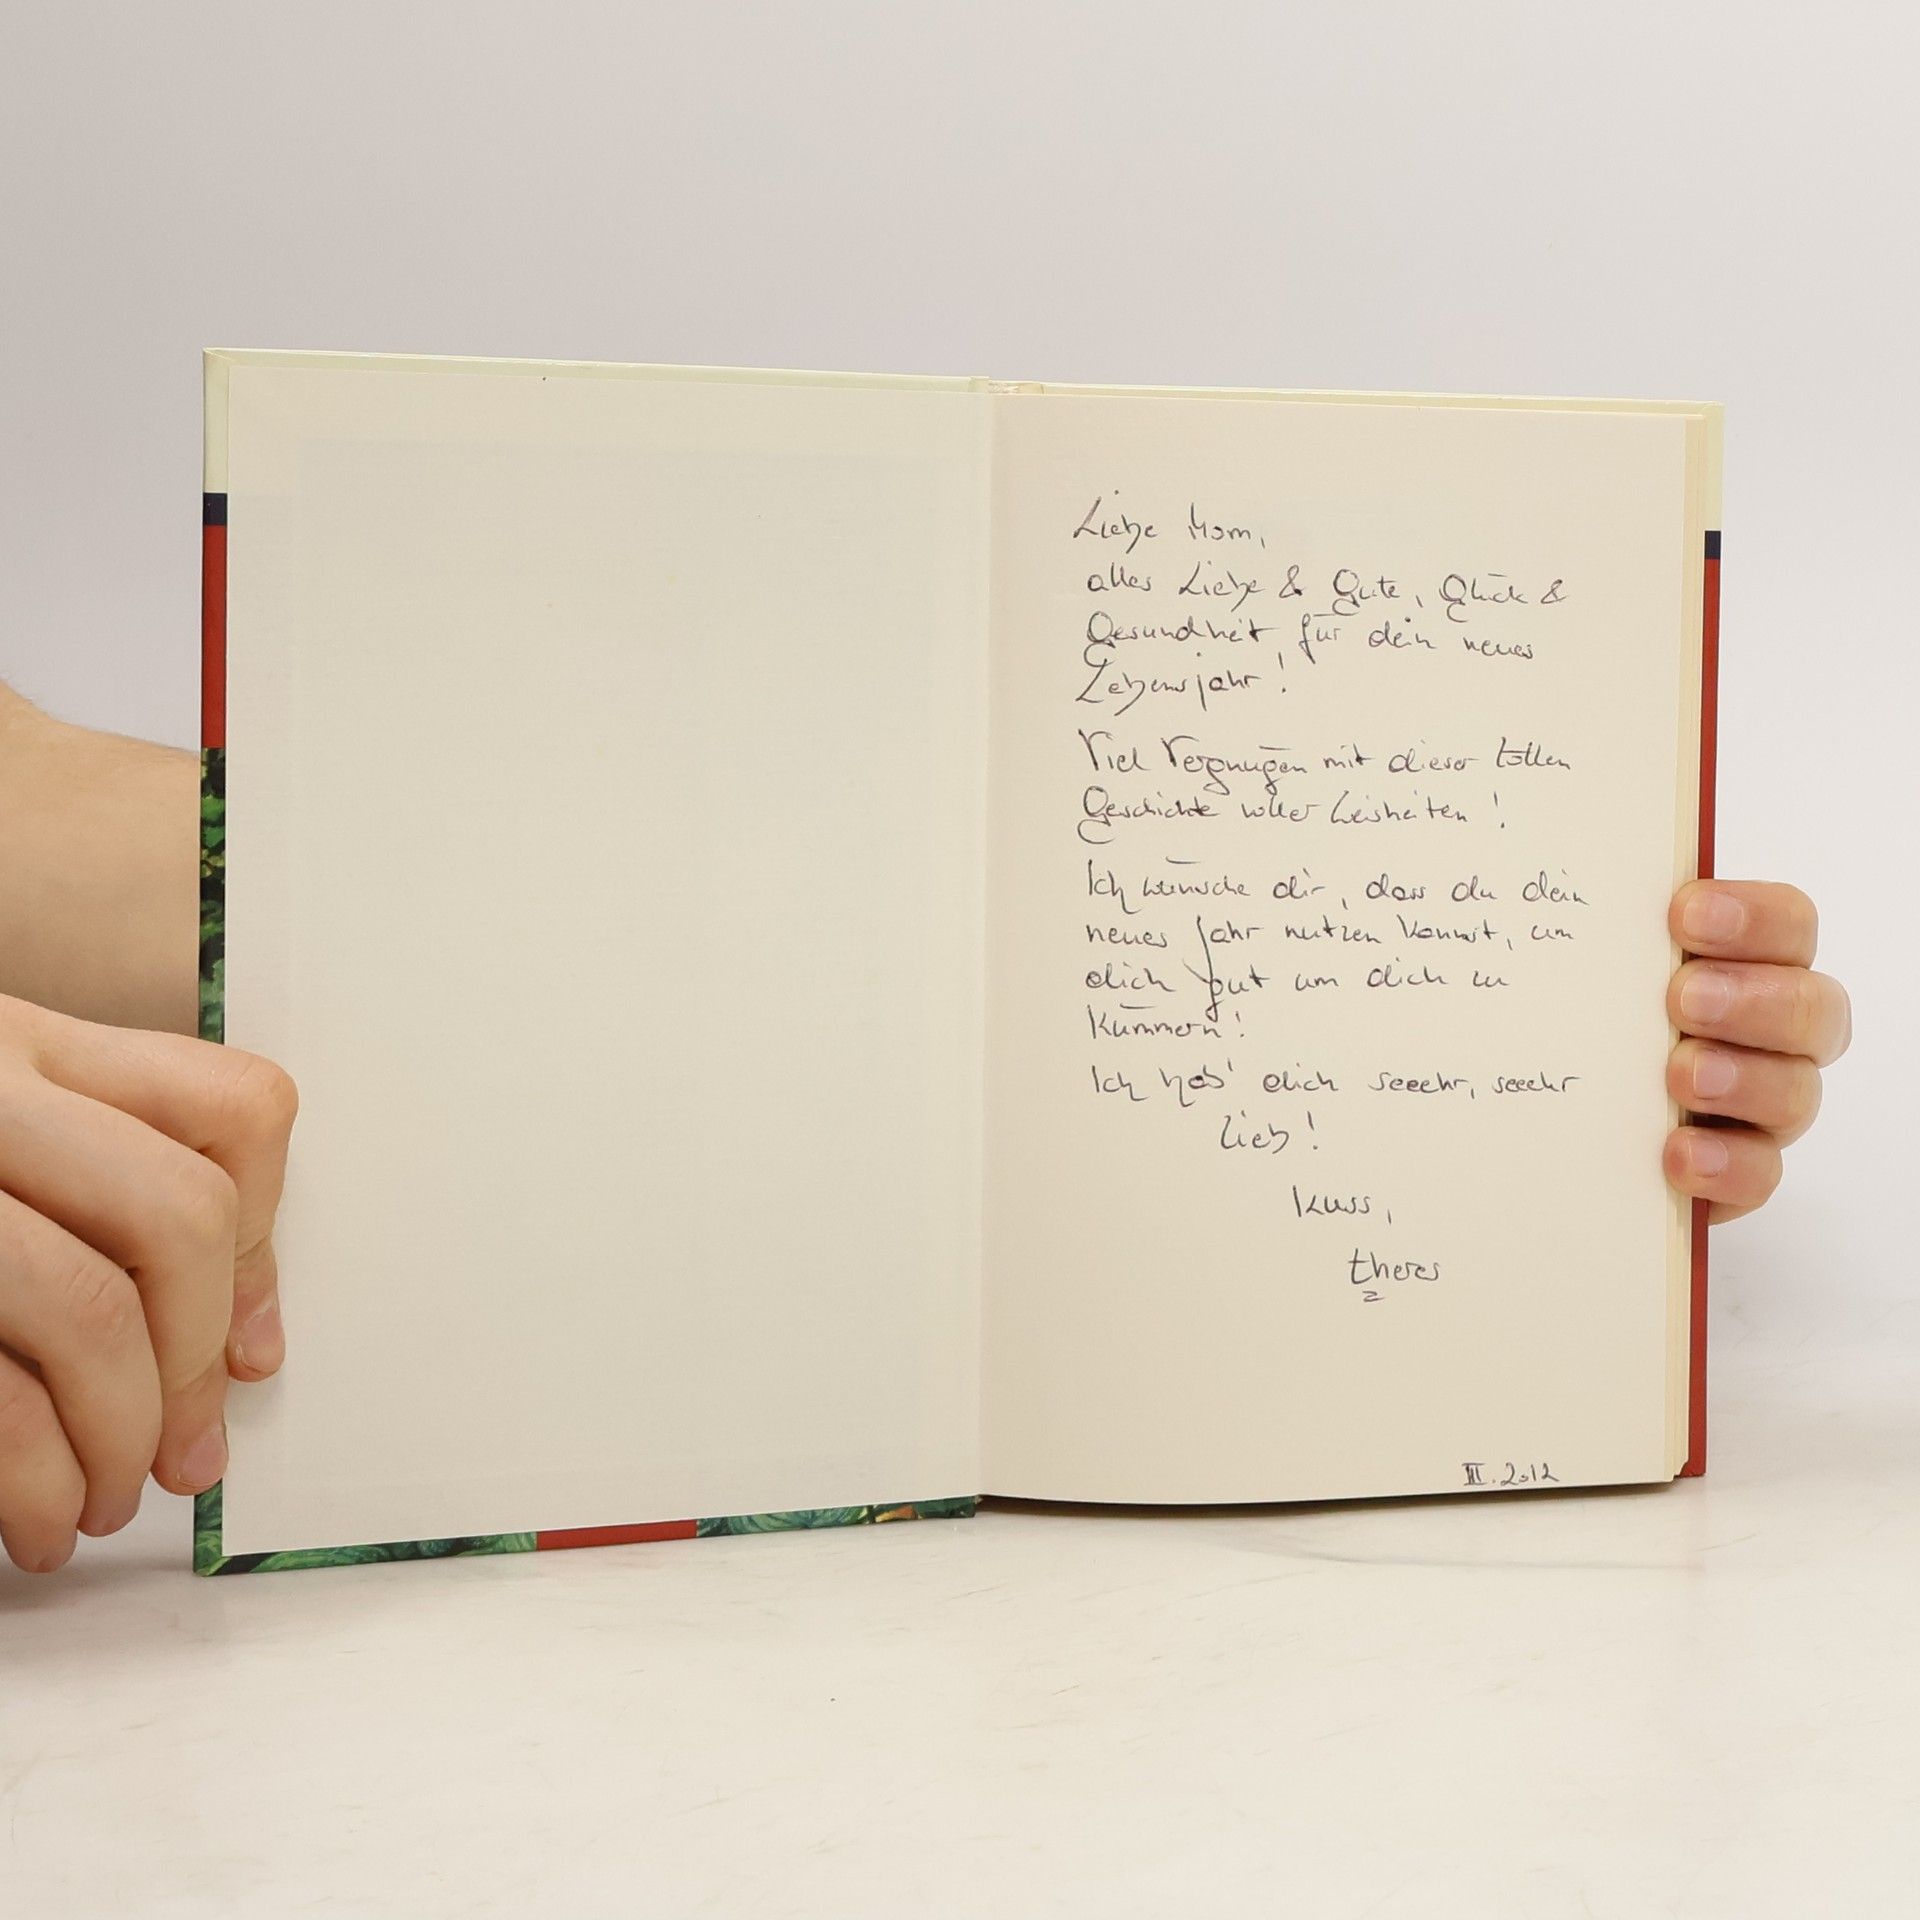 Liebe Mom,
alles Liebe & Gute, Glück &
Gesundheit für dein neues
Lebensjahr!
Viel Vergnügen mit dieser tollen
Geschichte voller Weisheiten!
Ich wünsche dir, dass du dein
neues Jahr nutzen kannst, um
dich gut um dich zu
kümmern!
Ich hab' dich seeehr, seeehr
lieb!
Kuss,
theres
III. 2012